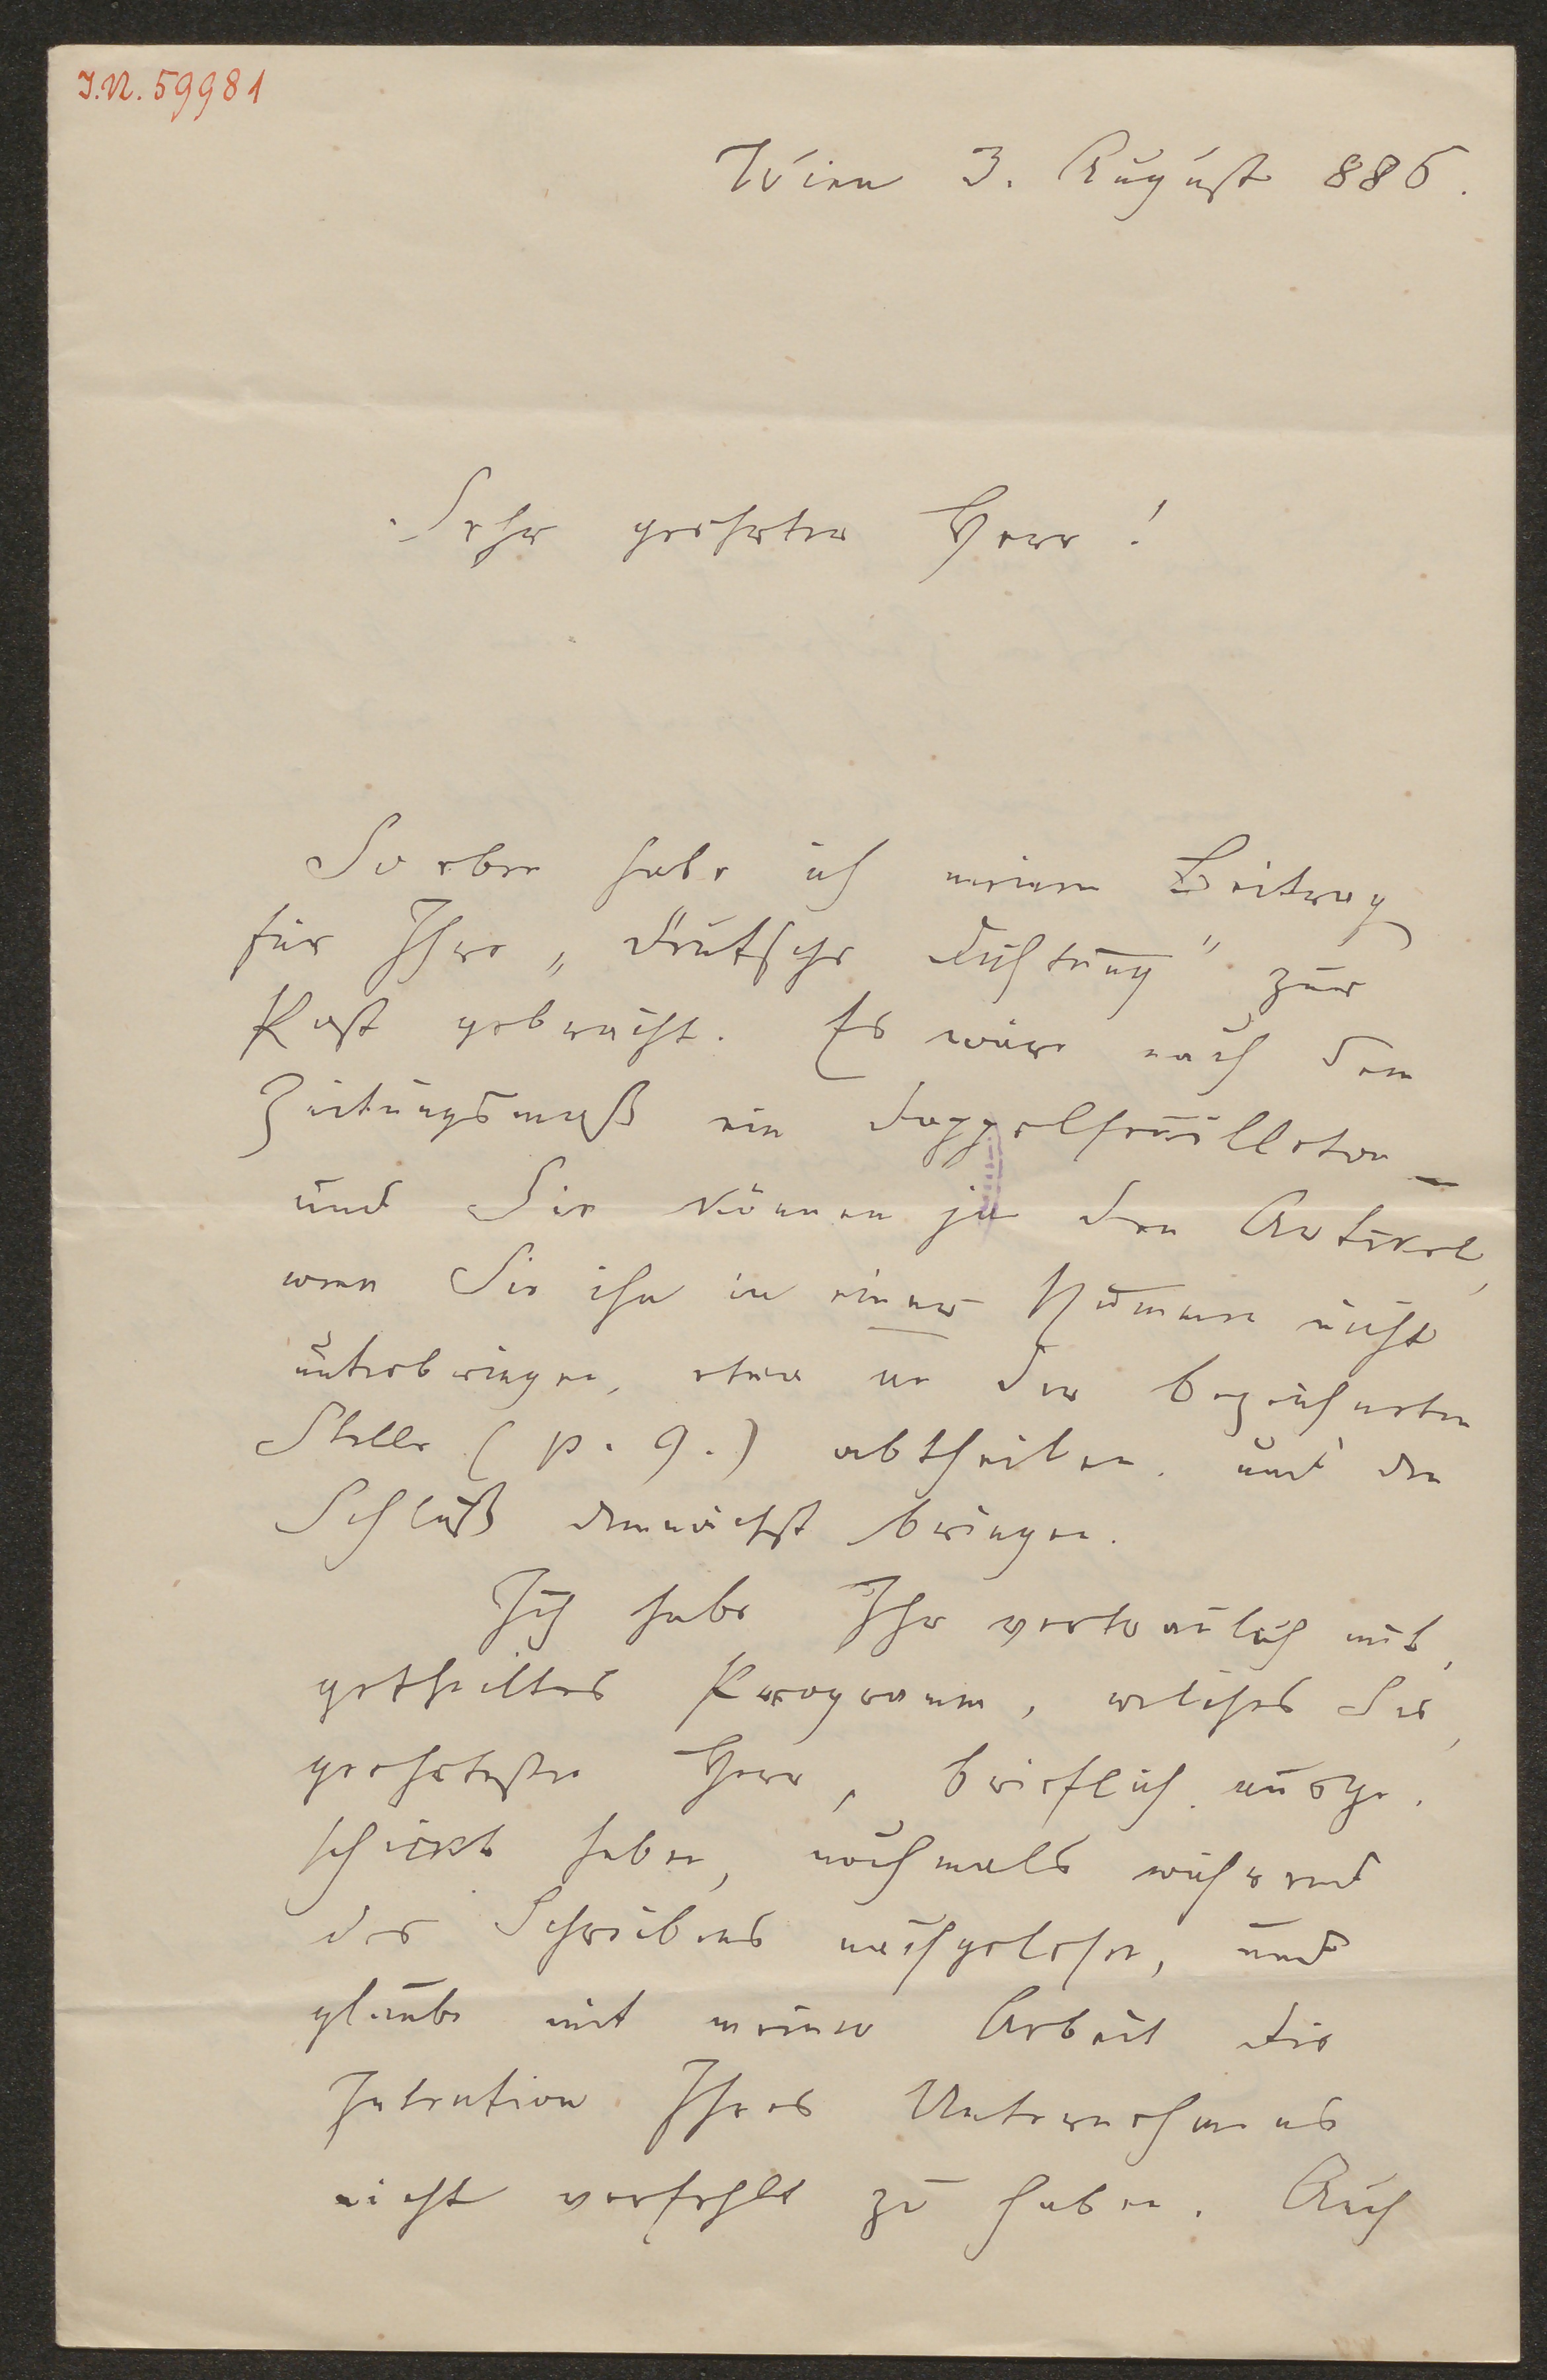 I.N. 59981
Wien 3. August 886.
Sehr geehrter Herr!
So eben habe ich meinen Beitrag
für Ihre „Deutsche Dichtung" zur
Post gebracht. Es wäre nach dem
Zeitungsmaß ein Doppelfeuilleton –
und Sie können ja den Artikel,
wenn Sie ihn in einer Nummer nicht
unterbringen, etwa an der bezeichneten
Stelle (p. 9.) abtheilen und den
Schluß demnächst bringen.
Ich habe Ihr vertraulich mit-
getheiltes Programm, welches Sie,
geehrtester Herr, brieflich ausge-
schickt haben, nochmals während
des Schreibens nachgelesen, und
glaube mit meiner Arbeit die
Intention Ihres Unternehmens
nicht verfehlt zu haben. Auch